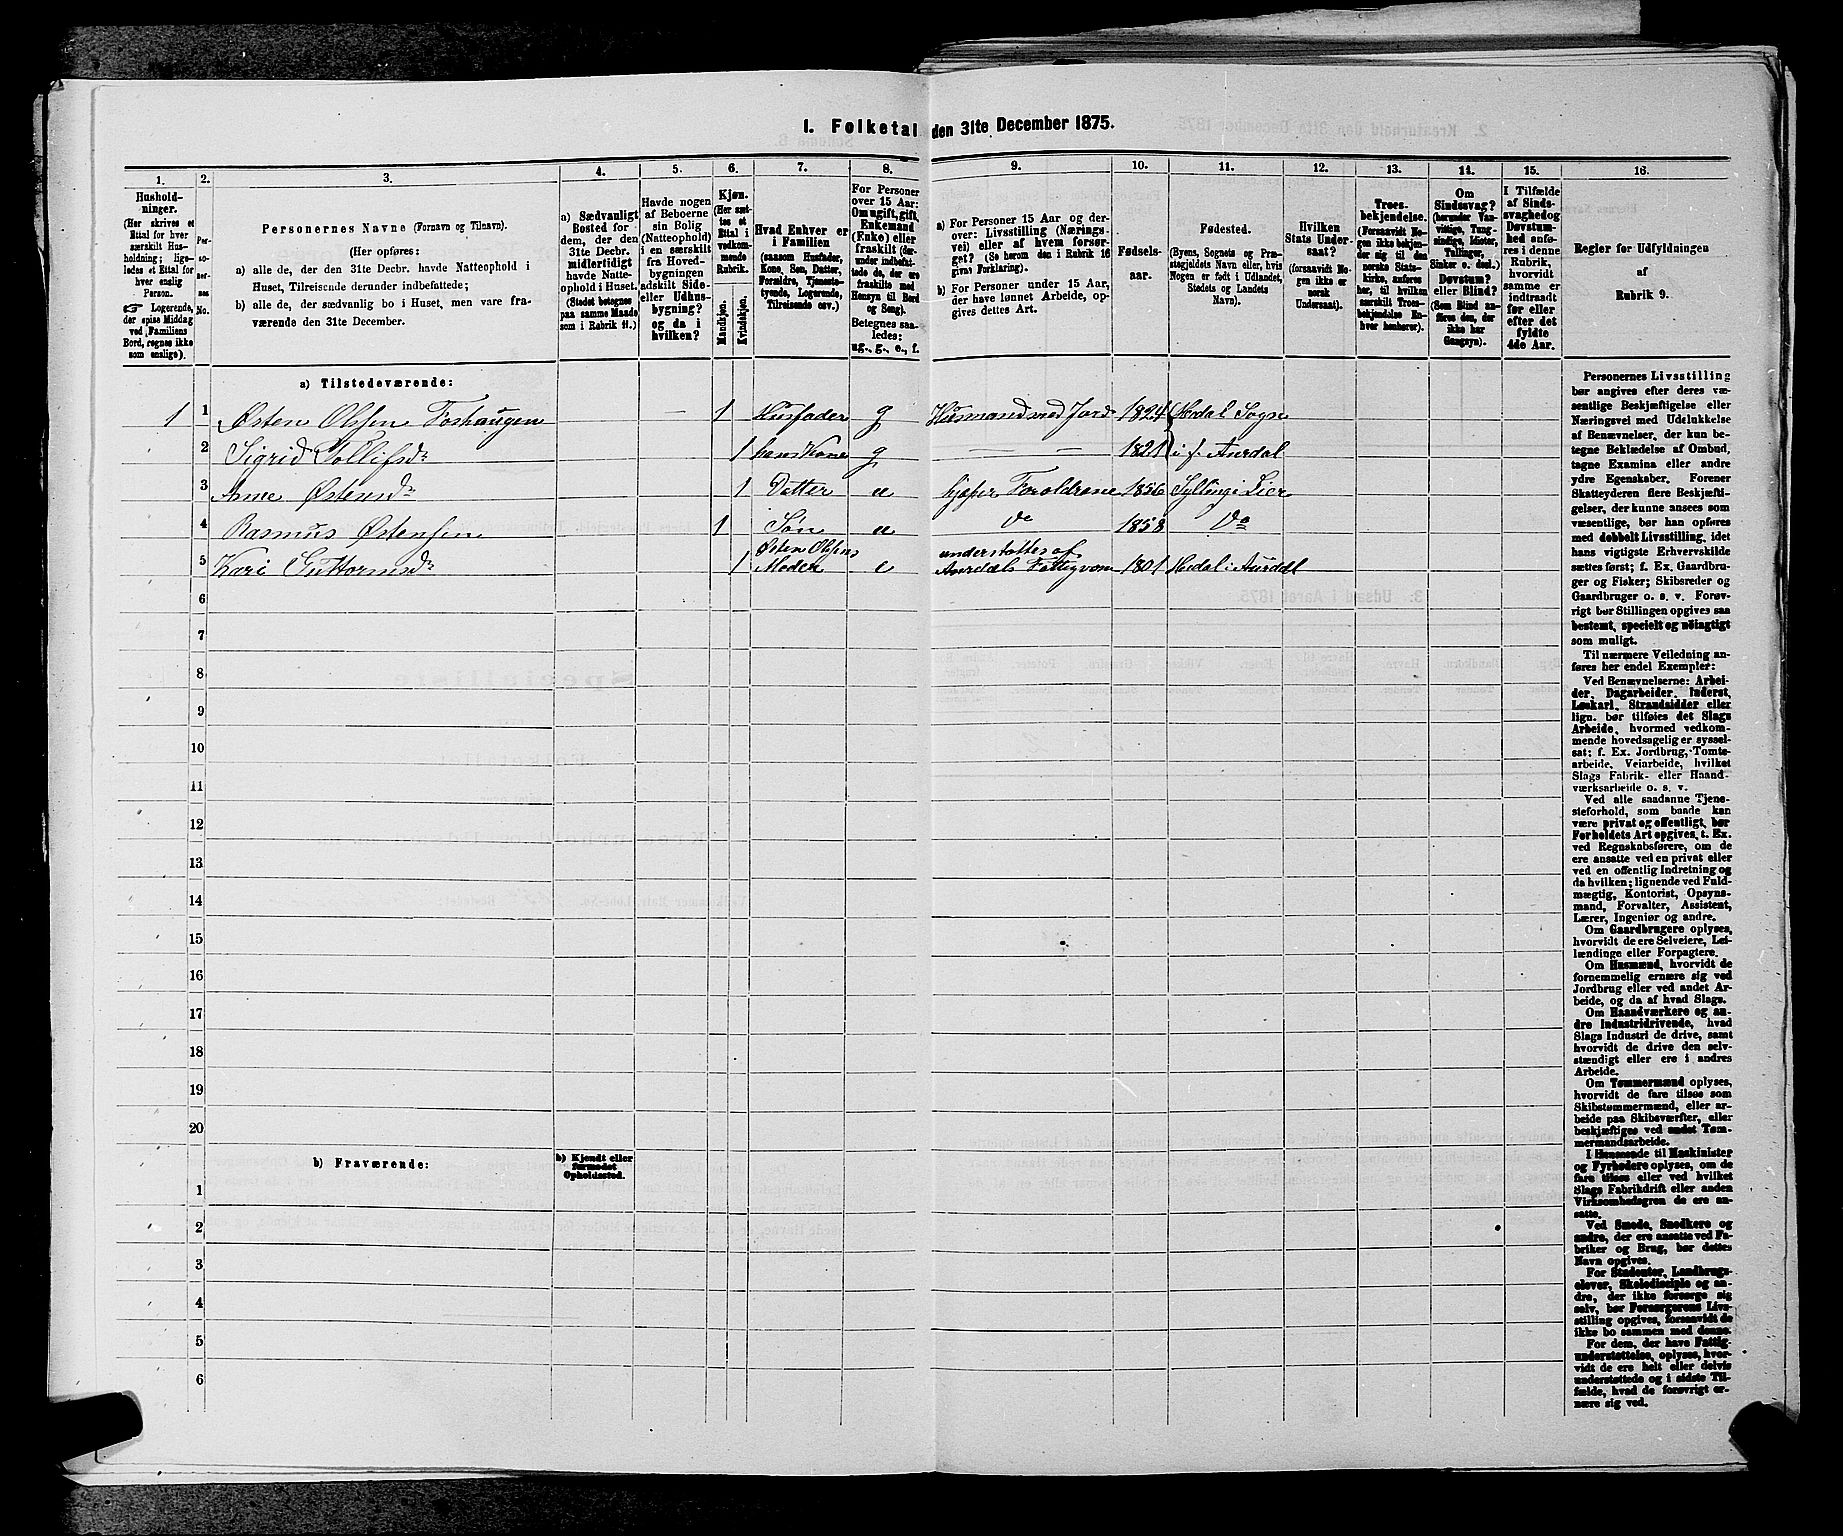 1. Folketal den 31te December 1875.
1. 2. 3. 4. 5. 6. 7. 8. 9. 10. 11. 12. 13. 14. 15. 16.
Hushold-
ninger.
(Her skrives et
Ettal for hver
særskilt Hus-
holdning; lige-
ledes et Ettal for
hver enslig
Person.
☞ Logerende,
der spise Middag
ved Familiens
Bord, regnes ikke
som enslige).
Per-
so-
ner-
nes
No.
Personernes Navne (Fornavn og Tilnavn).
(Her opføres:
a) alle de, der den 31te Decbr. havde Natteophold i
Huset, Tilreisende derunder indbefattede;
b) alle de, der sædvanlig bo i Huset, men vare fra-
værende den 31te December.
a) Sædvanligt
Bosted for
dem, der den
31te Decbr.
midlertidigt
havde Natte-
ophold i Huset.
(Stedet betegnes
paa samme Maade
som i Rubrik 11.)
Havde nogen
af Beboerne
sin Bolig
(Natteophold)
i en særskilt
fra Hoved-
bygningen
adskilt Side-
eller Udhus-
bygning?
og da i
hvilken?
Kjøn.
(Her sæt-
tes et
Ettal i
vedkom-
mende
Rubrik.
Mandkjøn.
Kvindekjøn.
Hvad Enhver er
i Familien
(saasom Husfader,
Kone, Søn, Datter,
Forældre, Tjeneste-
tyende, Logerende,
Tilreisende osv.)
For Personer
over 15 Aar:
Om ugift, gift,
Enkemand
(Enke) eller
fraskilt (der-
under indbefat-
tede de, der ere
fraskilte med
Hensyn til Bord
og Seng).
Betegnes saa-
ledes:
ug., g., e., f.
a) For Personer 15 Aar og der-
over: Livsstilling (Nærings-
vei) eller af hvem forsør-
get? (Se herom den i Rubrik 16
givne Forklaring).
b) For Personer under 15 Aar,
der have lønnet Arbeide, op-
gives dettes Art.
Fødsels-
aar.
Fødested.
(Byens, Sognets og Præ-
stegjeldets Navn eller, hvis
Nogen er født i Udlandet,
Stedets og Landets
Navn).
Hvilken
Stats Under-
saat?
(forsaavidt No-
gen ikke er
norsk
Undersaat).
Troes-
bekjendelse.
(Forsaavidt No-
gen ikke bekjen-
der sig til den
norske Stats-
kirke, anføres
her, til hvilken
særskilt Troes-
bekjendelse En-
hver henhører).
Om
Sindssvag?
(herunder Van-
vittige, Tung-
sindige, Idioter,
Tullinger,
Sinker o. desl.)
Døvstum?
eller Blind?
(Som Blind an-
føres den, der
ikke har
Gangsyn).
I Tilfælde
af Sinds-
svaghed og
Døvstum-
hed anfø-
res i denne
Rubrik,
hvorvidt
samme er
indtraadt
før eller
efter det
fyldte
4de Aar.
Regler for Udfyldningen
af
Rubrik 9.
a) Tilstedeværende:
1 1 Østen Olssen Foshaugen — 1 Husfader g Husmand med Jord 1824 Hedal Sogn
2 Sigrid Tollifsdr 1 hans Kone g — — 1821 i s. Aurdal
3 Anne Østensdr 1 Datter u hjelper Forældrene 1856 Sylling i Lier
4 Rasmus Østensen 1 Søn u Do 1858 Do
5 Kari Guttormsdr 1 Østen Olssens Moder e understøttes af Aurdals Fattigvæsen 1801 Hedal i Aurdal
6
7
8
9
10
11
12
13
14
15
16
17
18
19
20
b) Fraværende:
b) Kjendt eller
formodet
Opholdssted.
1
2
3
4
5
6
Personernes Livsstilling
bør angives efter deres væ-
sentlige Beskjæftigelse eller
Næringsvei med Udelukkelse
af Benævnelser, der kun be-
tegne Beklædelse af Ombud,
tagne Examina eller andre
ydre Egenskaber. Forener
Skatteyderen flere Beskjæfti-
gelser, der kunne ansees som
væsentlige, bør han opføres
med dobbelt Livsstilling, idet
hans vigtigste Erhvervskilde
sættes først; f. Ex. Gaardbru-
ger og Fisker; Skibsreder og
Gaardbruger o. s. v. Forøv-
rigt bør Stillingen opgives saa
bestemt, specielt og nøiagtigt
som muligt.
Til nærmere Veiledning an-
føres her endel Exempler:
Ved Benævnelserne: Arbei-
der, Dagarbeider, Inderst,
Løskarl, Strandsidder eller
lign. bør tilføies det Slags
Arbeide, hvormed vedkom-
mende hovedsagelig er syssel-
sat; f. Ex. Jordbrug, Tomte-
arbeide, Veiarbeide, hvilket
Slags Fabrik- eller Haand-
værksarbeide o. s. v.
Ved alle saadanne Tjene-
steforhold, som baade kan
være privat og offentligt, bør
Forholdets Art opgives, t. Ex.
ved Regnskabsførere, om de
ere ansatte ved en privat eller
ved en offentlig Indretning og
da hvilken; lignende ved Fuld-
mægtig, Kontorist, Opsyns-
mand, Forvalter, Assistent,
Lærer, Ingeniør og andre.
Om Gaardbrugere oplyses,
hvorvidt de ere Selveiere, Lei-
lændinge eller Forpagtere.
Om Husmænd, hvorvidt de
fornemmelig ernære sig ved
Jordbrug eller ved andet Ar-
beide, og da af hvad Slags.
Om Haandværkere og an-
dre Industridrivende, hvad
Slags Industri de drive, samt
hvorvidt de drive den selv-
stændigt eller ere i andres
Arbeide.
Om Tømmermænd oplyses,
hvorvidt de fare tilsøs som
Skibstømmermænd, eller ar-
beide paa Skibsværfter, eller
beskjæftiges ved andet Tøm-
mermandsarbeide.
I Henseende til Maskinister
og Fyrbødere oplyses, om de
fare tilsøs eller ved hvilket
Slags Fabrikdrift eller anden
Virksomhedsgren de ere an-
satte.
Ved Smede, Snedkere og
andre, der ere ansatte ved Fa-
briker og Brug, bør dettes
Navn opgives.
For Studenter, Landbrugs-
elever, Skoledisciple og an-
dre, der ikke forsørge sig
selv, bør Forsørgerens Livs-
stilling opgives, forsaavidt de
ikke bo sammen med denne.
For dem, der have Fattig-
understøttelse, oplyses, hvor-
vidt de ere helt eller delvis
understøttede og i sidste Til-
fælde, hvad de forøvrigt er-
nære sig ved.